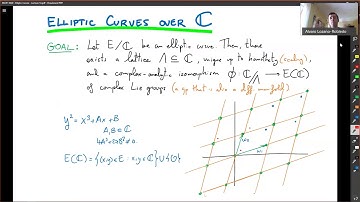 ELLIPTIC CURVES OVER ℂ
GOAL: Let E/ℂ be an elliptic curve. Then, there
exists a lattice Λ ⊆ ℂ, unique up to homothety (scaling),
and a complex-analytic isomorphism φ: ℂ/Λ → E(ℂ)
of complex Lie groups (a gp that is also a diff
y² = x³ + Ax + B
A, B ∈ ℂ
4A³+27B² ≠ 0
E(ℂ) = {(x,y) ∈ E : x,y ∈ ℂ} ∪ {O}
Alvaro Lozano-Robledo